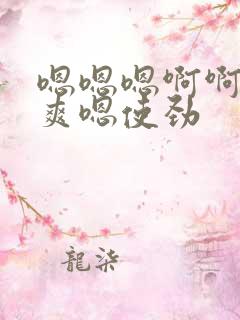 嗯嗯嗯啊啊
爽嗯使劲
龍柒